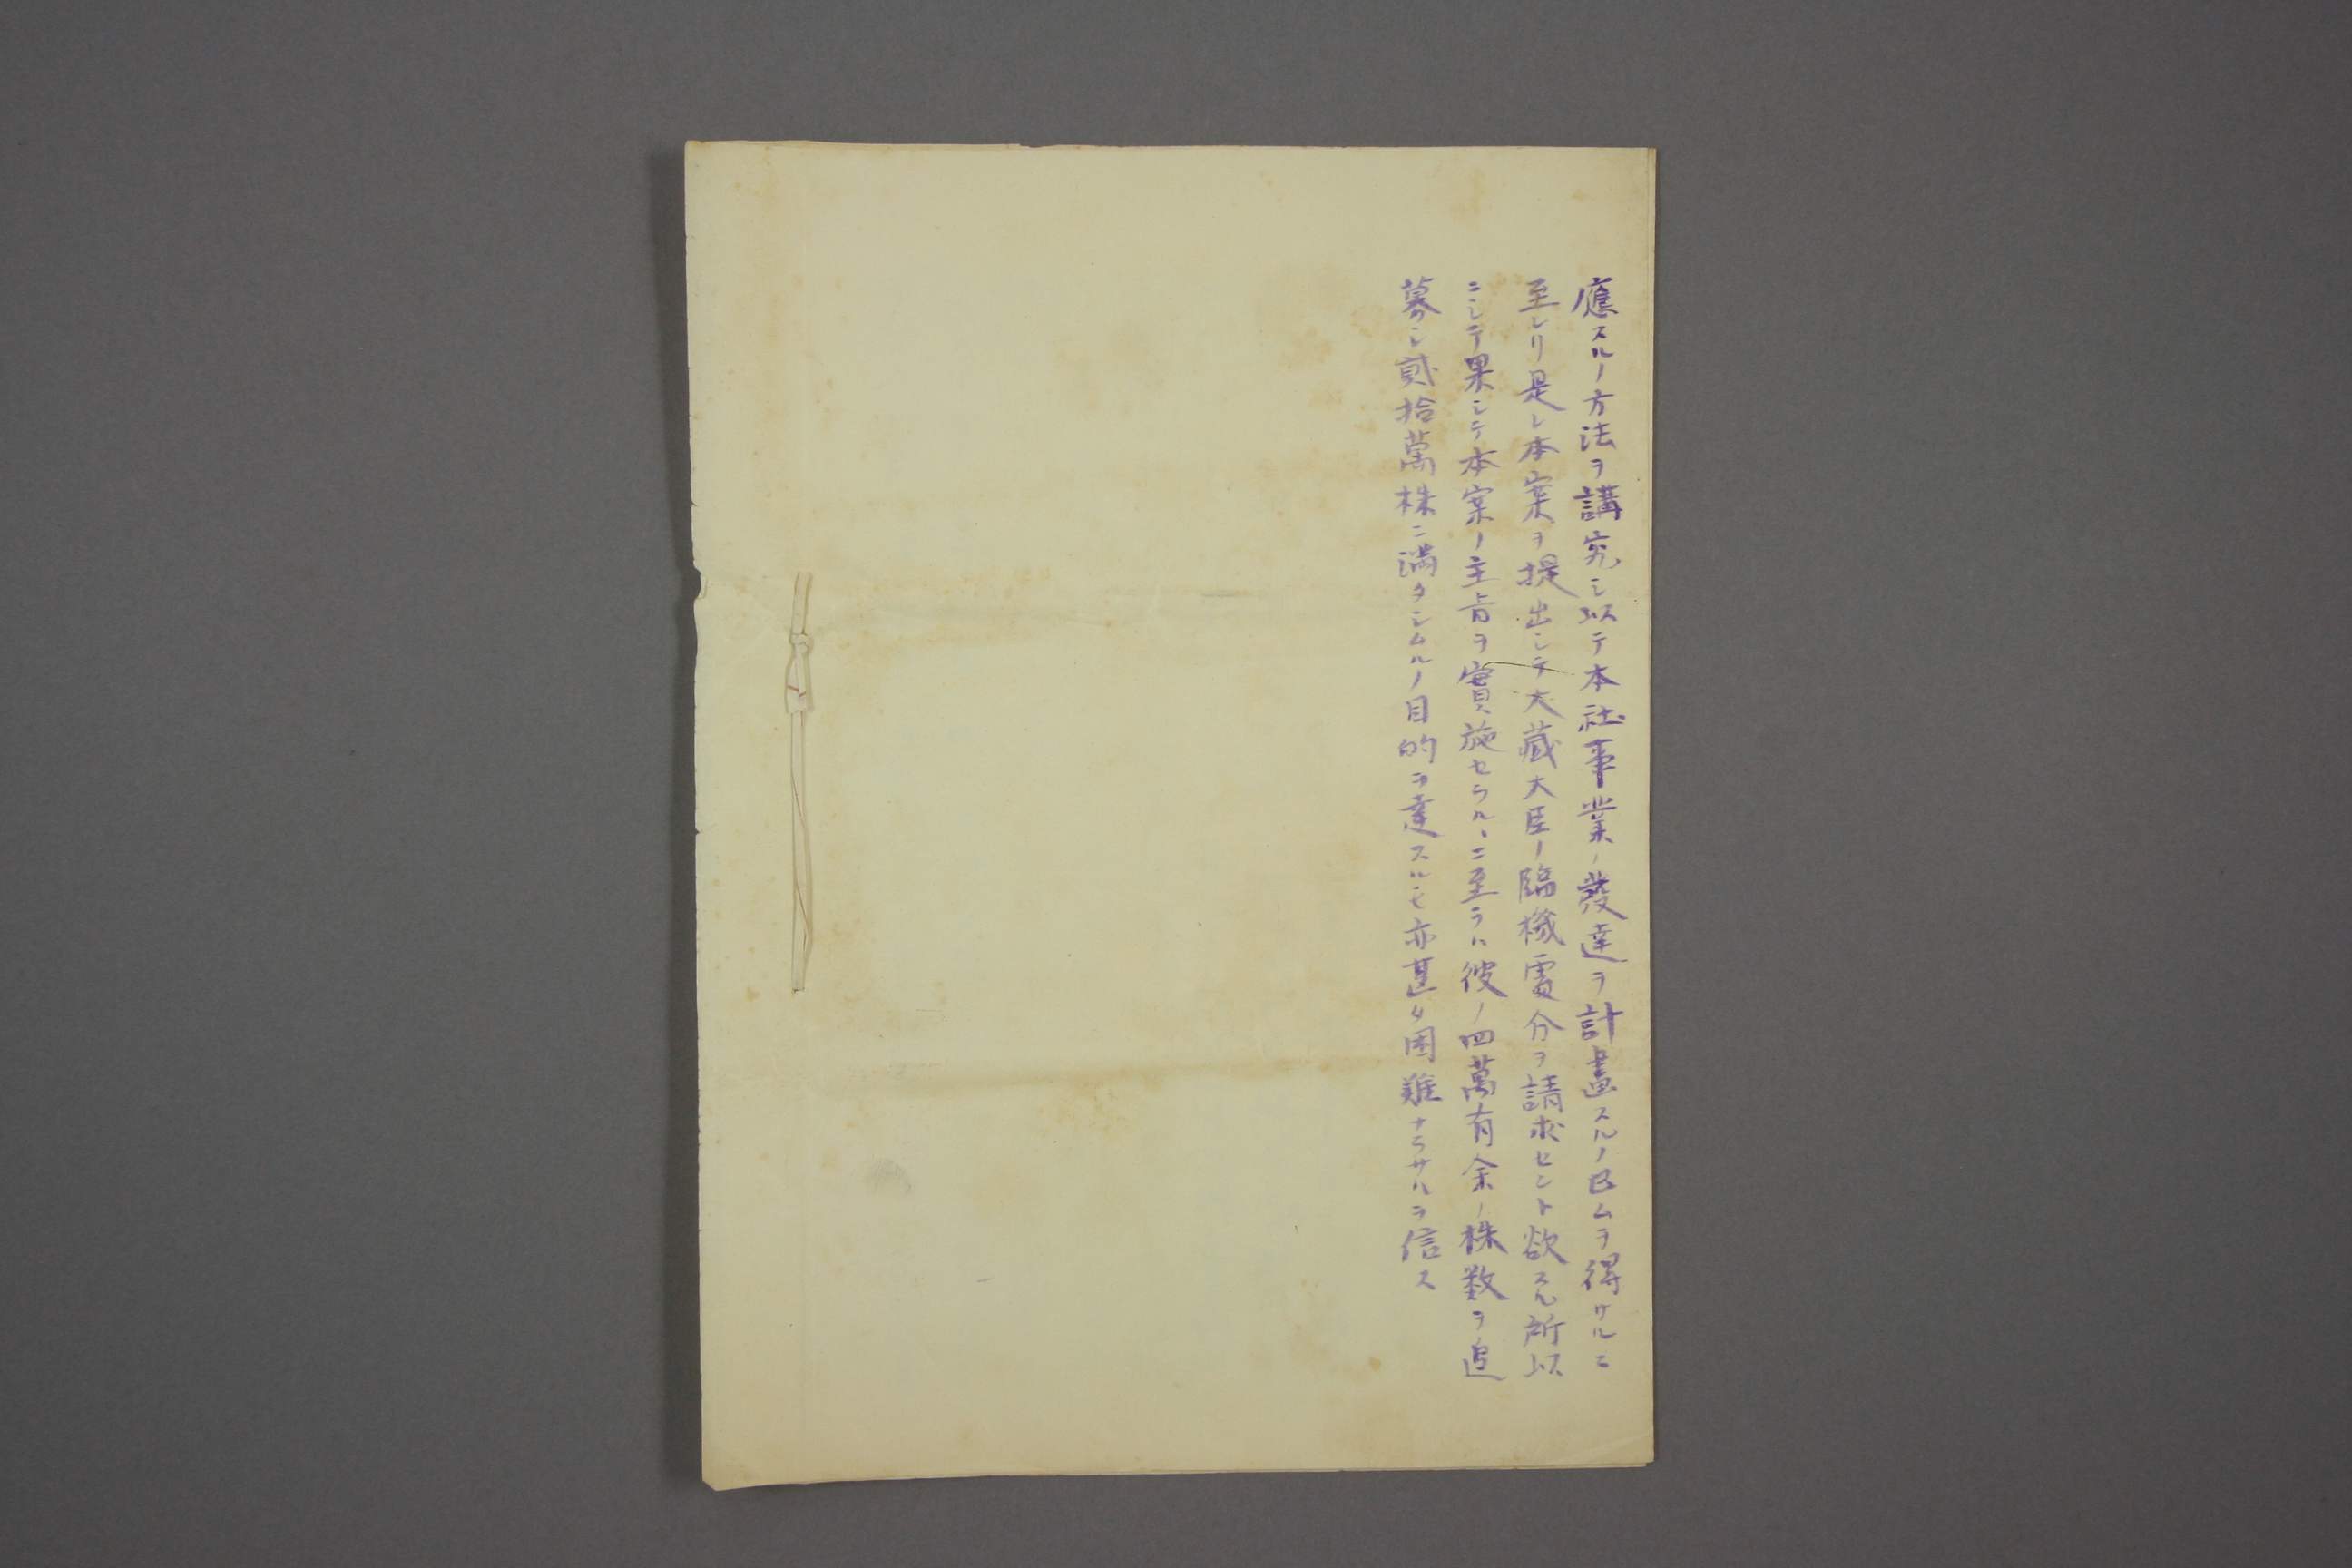 應スルノ方法ヲ講究シ以テ本社事業ノ發達ヲ計畫スルノ已ムヲ得サルニ
至レリ是レ本案ヲ提出シテ大藏大臣ノ臨機處分ヲ請求セント欲スル所以
ニシテ果シテ本案ノ主旨ヲ實施セラルヽニ至ラハ彼ノ四萬有余ノ株数ヲ追
募シ貳拾萬株ニ満タシムルノ目的ヲ達スルモ亦甚タ困難ナラサルヲ信ス